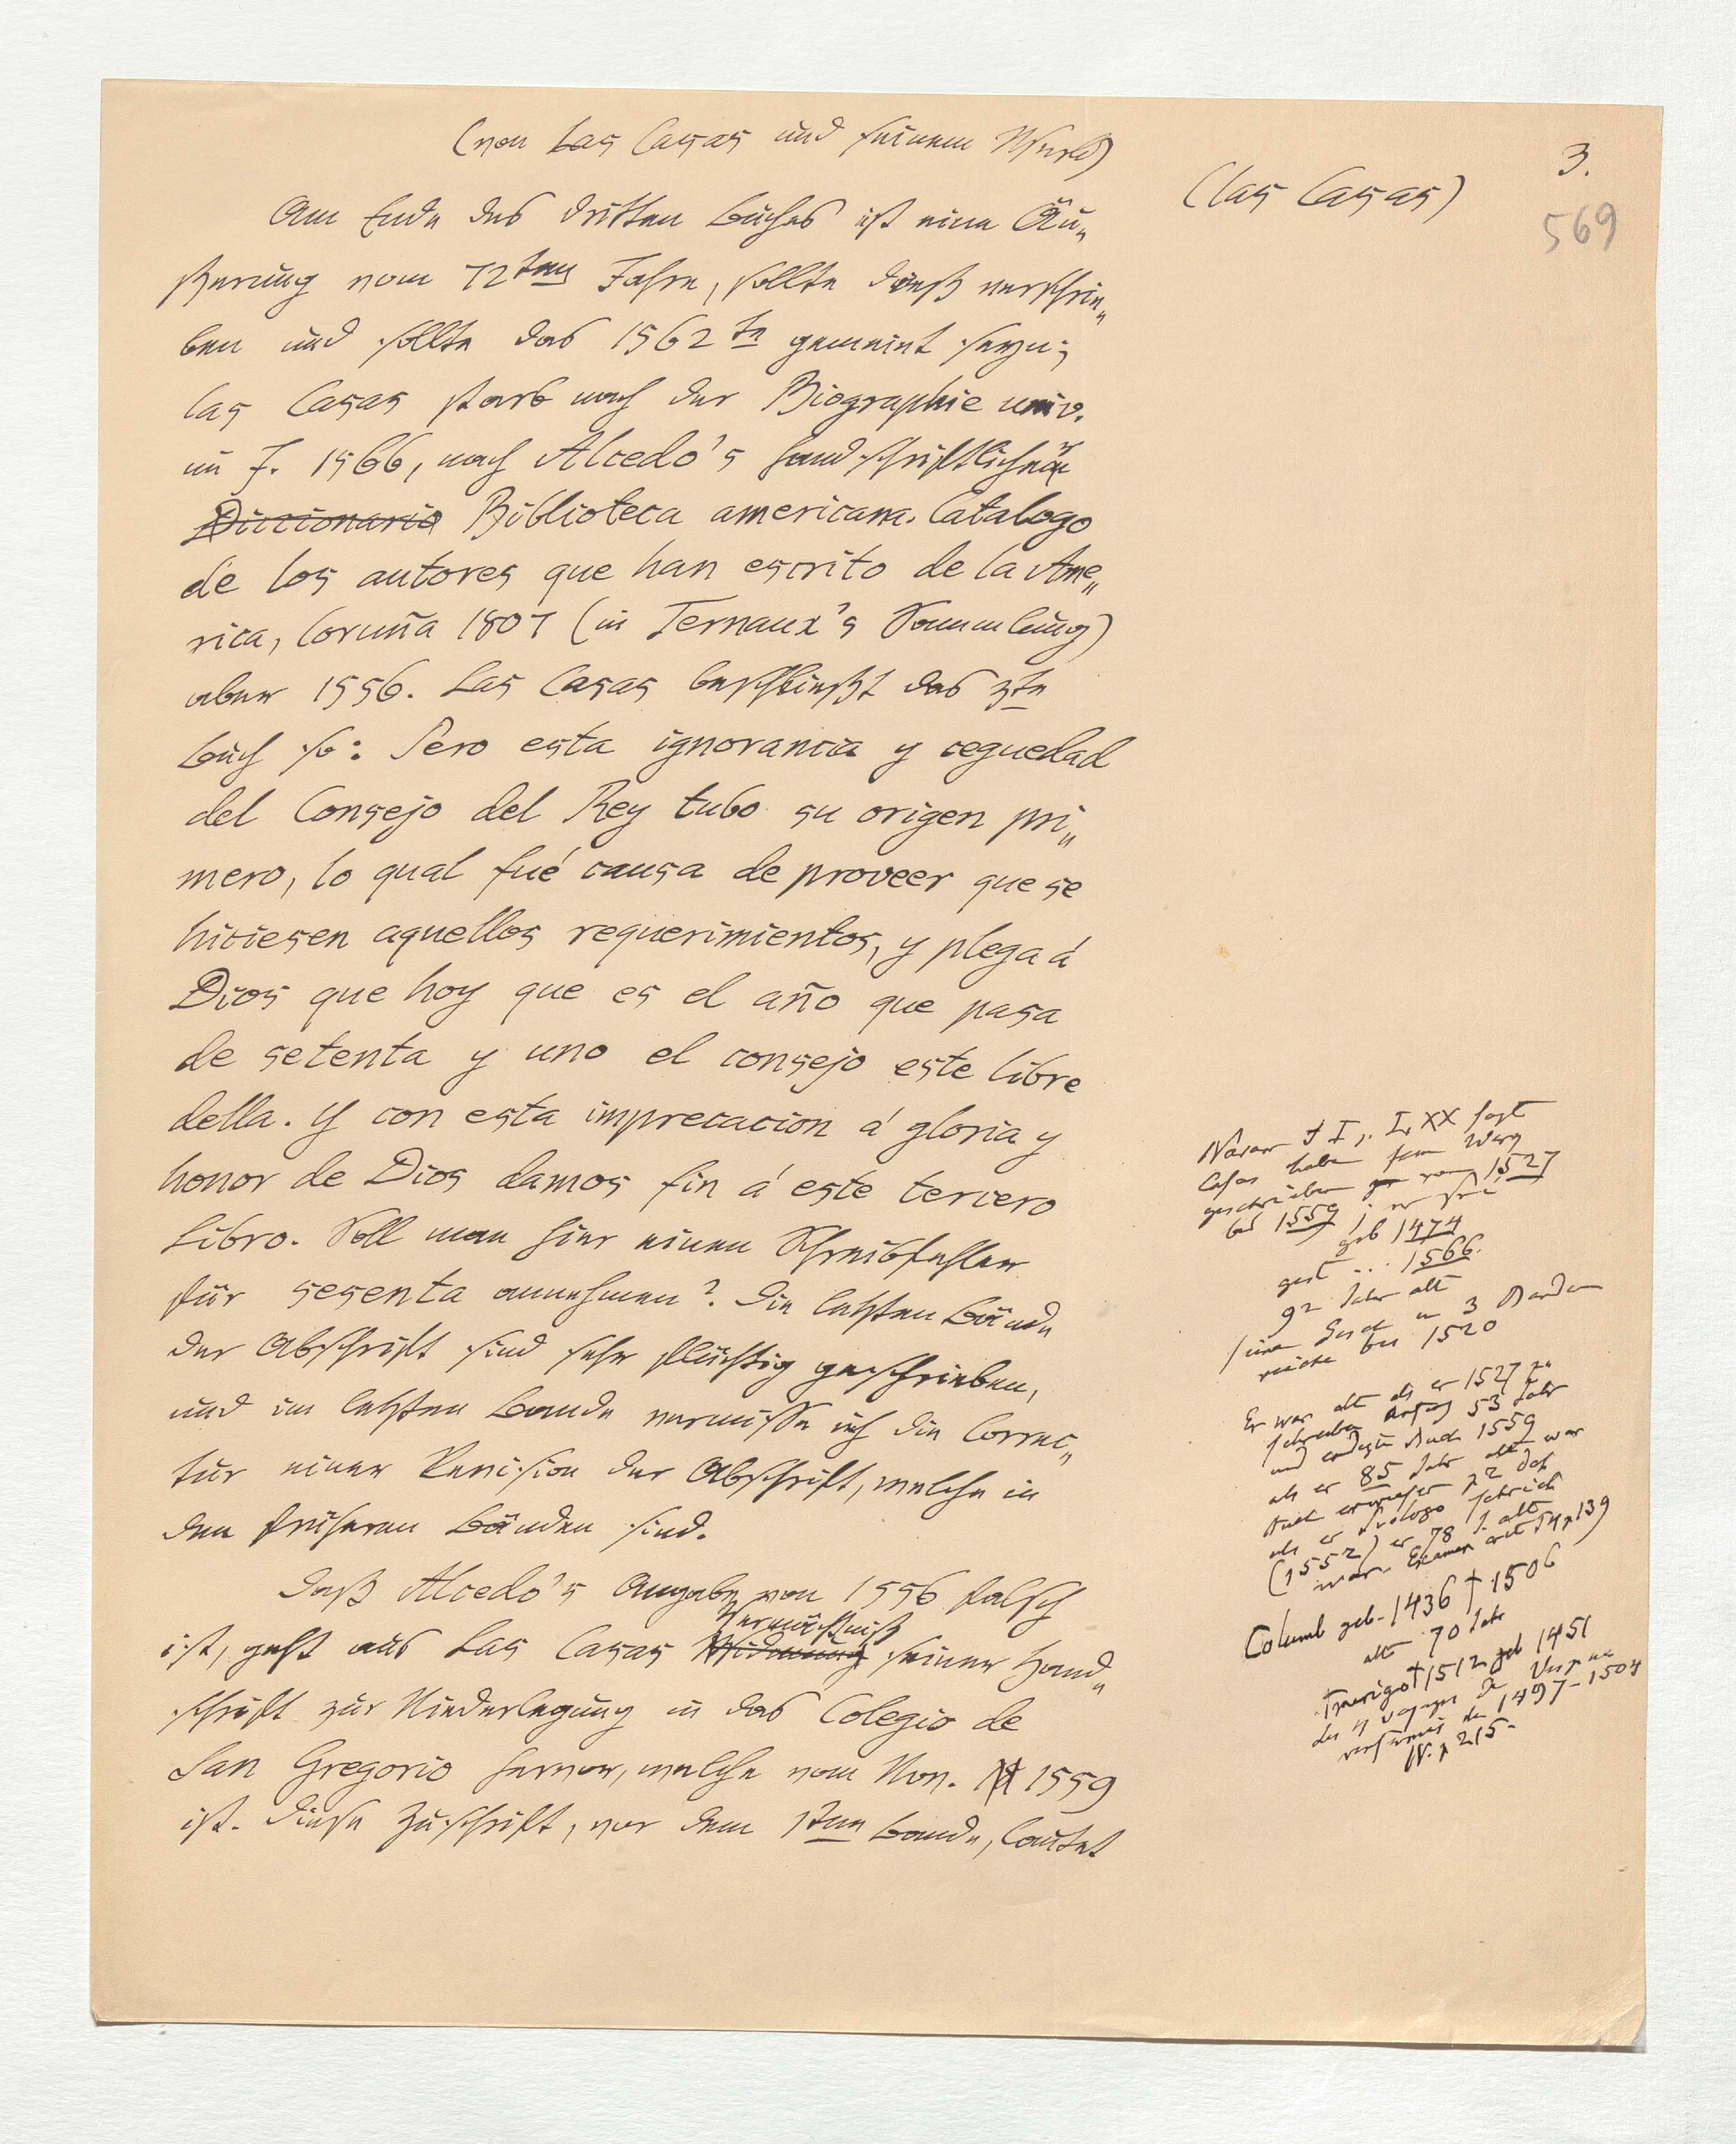 (von Las Casas und seinem Werke)
(las Casas)
3.
569
Am Ende des dritten Buches ist eine Äu„
ßerung vom 72ten Jahre, sollte dieß verschrie„
ben und sollte das 1562te gemeint seyn;
las Casas starb nach der Biographie univ.
im J. 1566, nach Alcedo's handschriftlicher
Diccionario Biblioteca americana. Catalogo
de los autores que han escrito de la Ame„
rica, Coruña 1807 (in Ternaux's Sammlung)
aber 1556. Las Casas beschließt das 3te
Buch so: Pero esta ignorancia y ceguedad
del Consejo del Rey tubo su origen pri„
mero, lo qual fué causa de proveer que se
hiciesen aquellos requerimientos, y plega á
Dios que hoy que es el año que pasa
de setenta y uno el consejo este libre
della. Y con esta imprecacion á gloria y
honor de Dios damos fin á este tercero
Libro. Soll man hier einen Schreibfehler
für sesenta annehmen? Die letzten Bände
der Abschrift sind sehr flüchtig geschrieben,
und im letzten Bande vermisse ich die Correc„
tur einer Revision der Abschrift, welche in
den früheren Bänden sind.
Daß Alcedo's Angabe von 1556 falsch
ist, geht aus Las Casas Widmung Vermächtniß seiner Hand„
schrift zur Niederlegung in das Colegio de
San Gregorio hervor, welche vom Nov. 1559
ist. Diese Zuschrift, vor dem 1ten Bande, lautet
Navar t I, LXX sagt
Casas habe sein Werg
geschrieben von 1527
bis 1559; er sei
geb 1474
gest ... 1566.
92 Jahr alt
seine Gesch in 3 Banden
reiche bis 1520
Er war alt als er 1527 zu
schreiben anfing 53 Jahr
und endigte Buch 1559
als er 85 Jahr alt war
Auch erwiesen p 2 daß
als er Prologo schrieb
(1552) er 78 J. alt
war. Examen crit T 4 p 139
Columb geb. 1436 † 1506
alt 70 Jahr
Amerigo † 1512 geb 1451
der 4 voyages de Vespuce
1497–1504
IV. p 215.